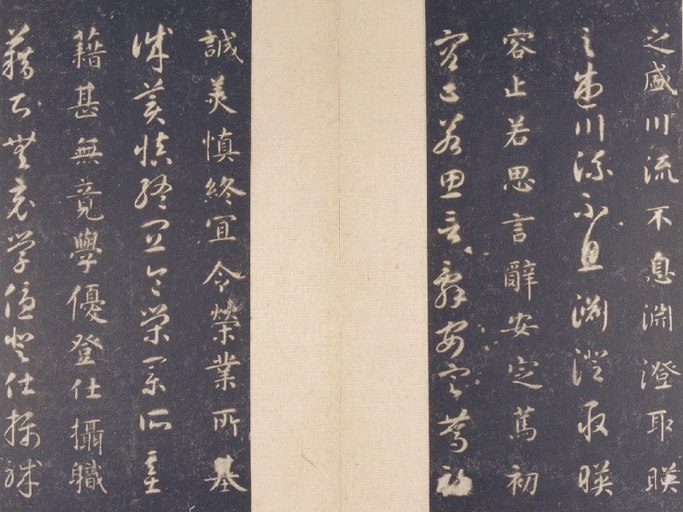 之盛川流不息淵澄取暎
之盛川流不息淵澄取暎
容止若思言辭安定篤初
容止若思言辭安定篤初
誠美慎終宜令榮業所基
誠美慎終宜令榮業所基
藉甚無竟學優登仕攝職
藉甚無竟學優登仕攝職